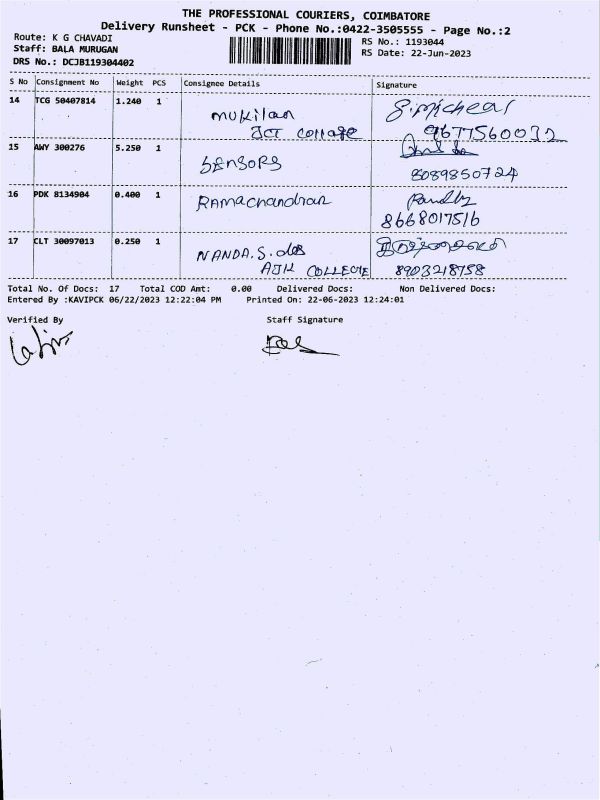 THE PROFESSIONAL COURIERS, COIMBATORE
Delivery Runsheet - PCK - Phone No.:0422-3505555 - Page No.:2
Route: K G CHAVADI
RS No.: 1193044
Staff: BALA MURUGAN
RS Date: 22-Jun-2023
DRS No.: DCJB119304402
S No Consignment No Weight PCS Consignee Details Signature
14 TCG 50407814 1.240 1 S.Micheal
Mukilan
JCT College 9677560032
15 AWY 300276 5.250 1
SENSORS 8089850724
16 PDK 8134904 0.400 1 Ramachandran
8668017516
17 CLT 30097013 0.250 1
NANDA.S. das
AJK COLLEGE 8903218758
Total No. Of Docs: 17 Total COD Amt: 0.00 Delivered Docs: Non Delivered Docs:
Entered By :KAVIPCK 06/22/2023 12:22:04 PM Printed On: 22-06-2023 12:24:01
Verified By Staff Signature